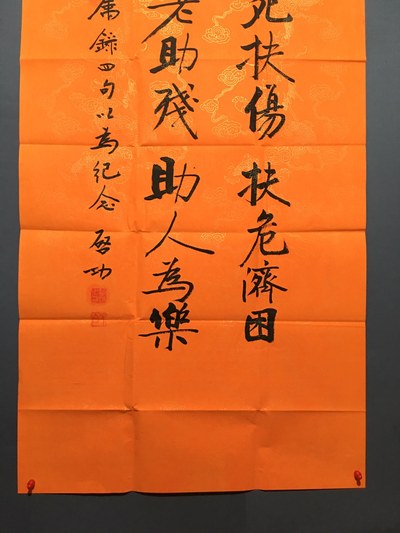 死扶傷 扶危濟困
老助殘 助人為樂
屬錄四句以為紀念 啓功